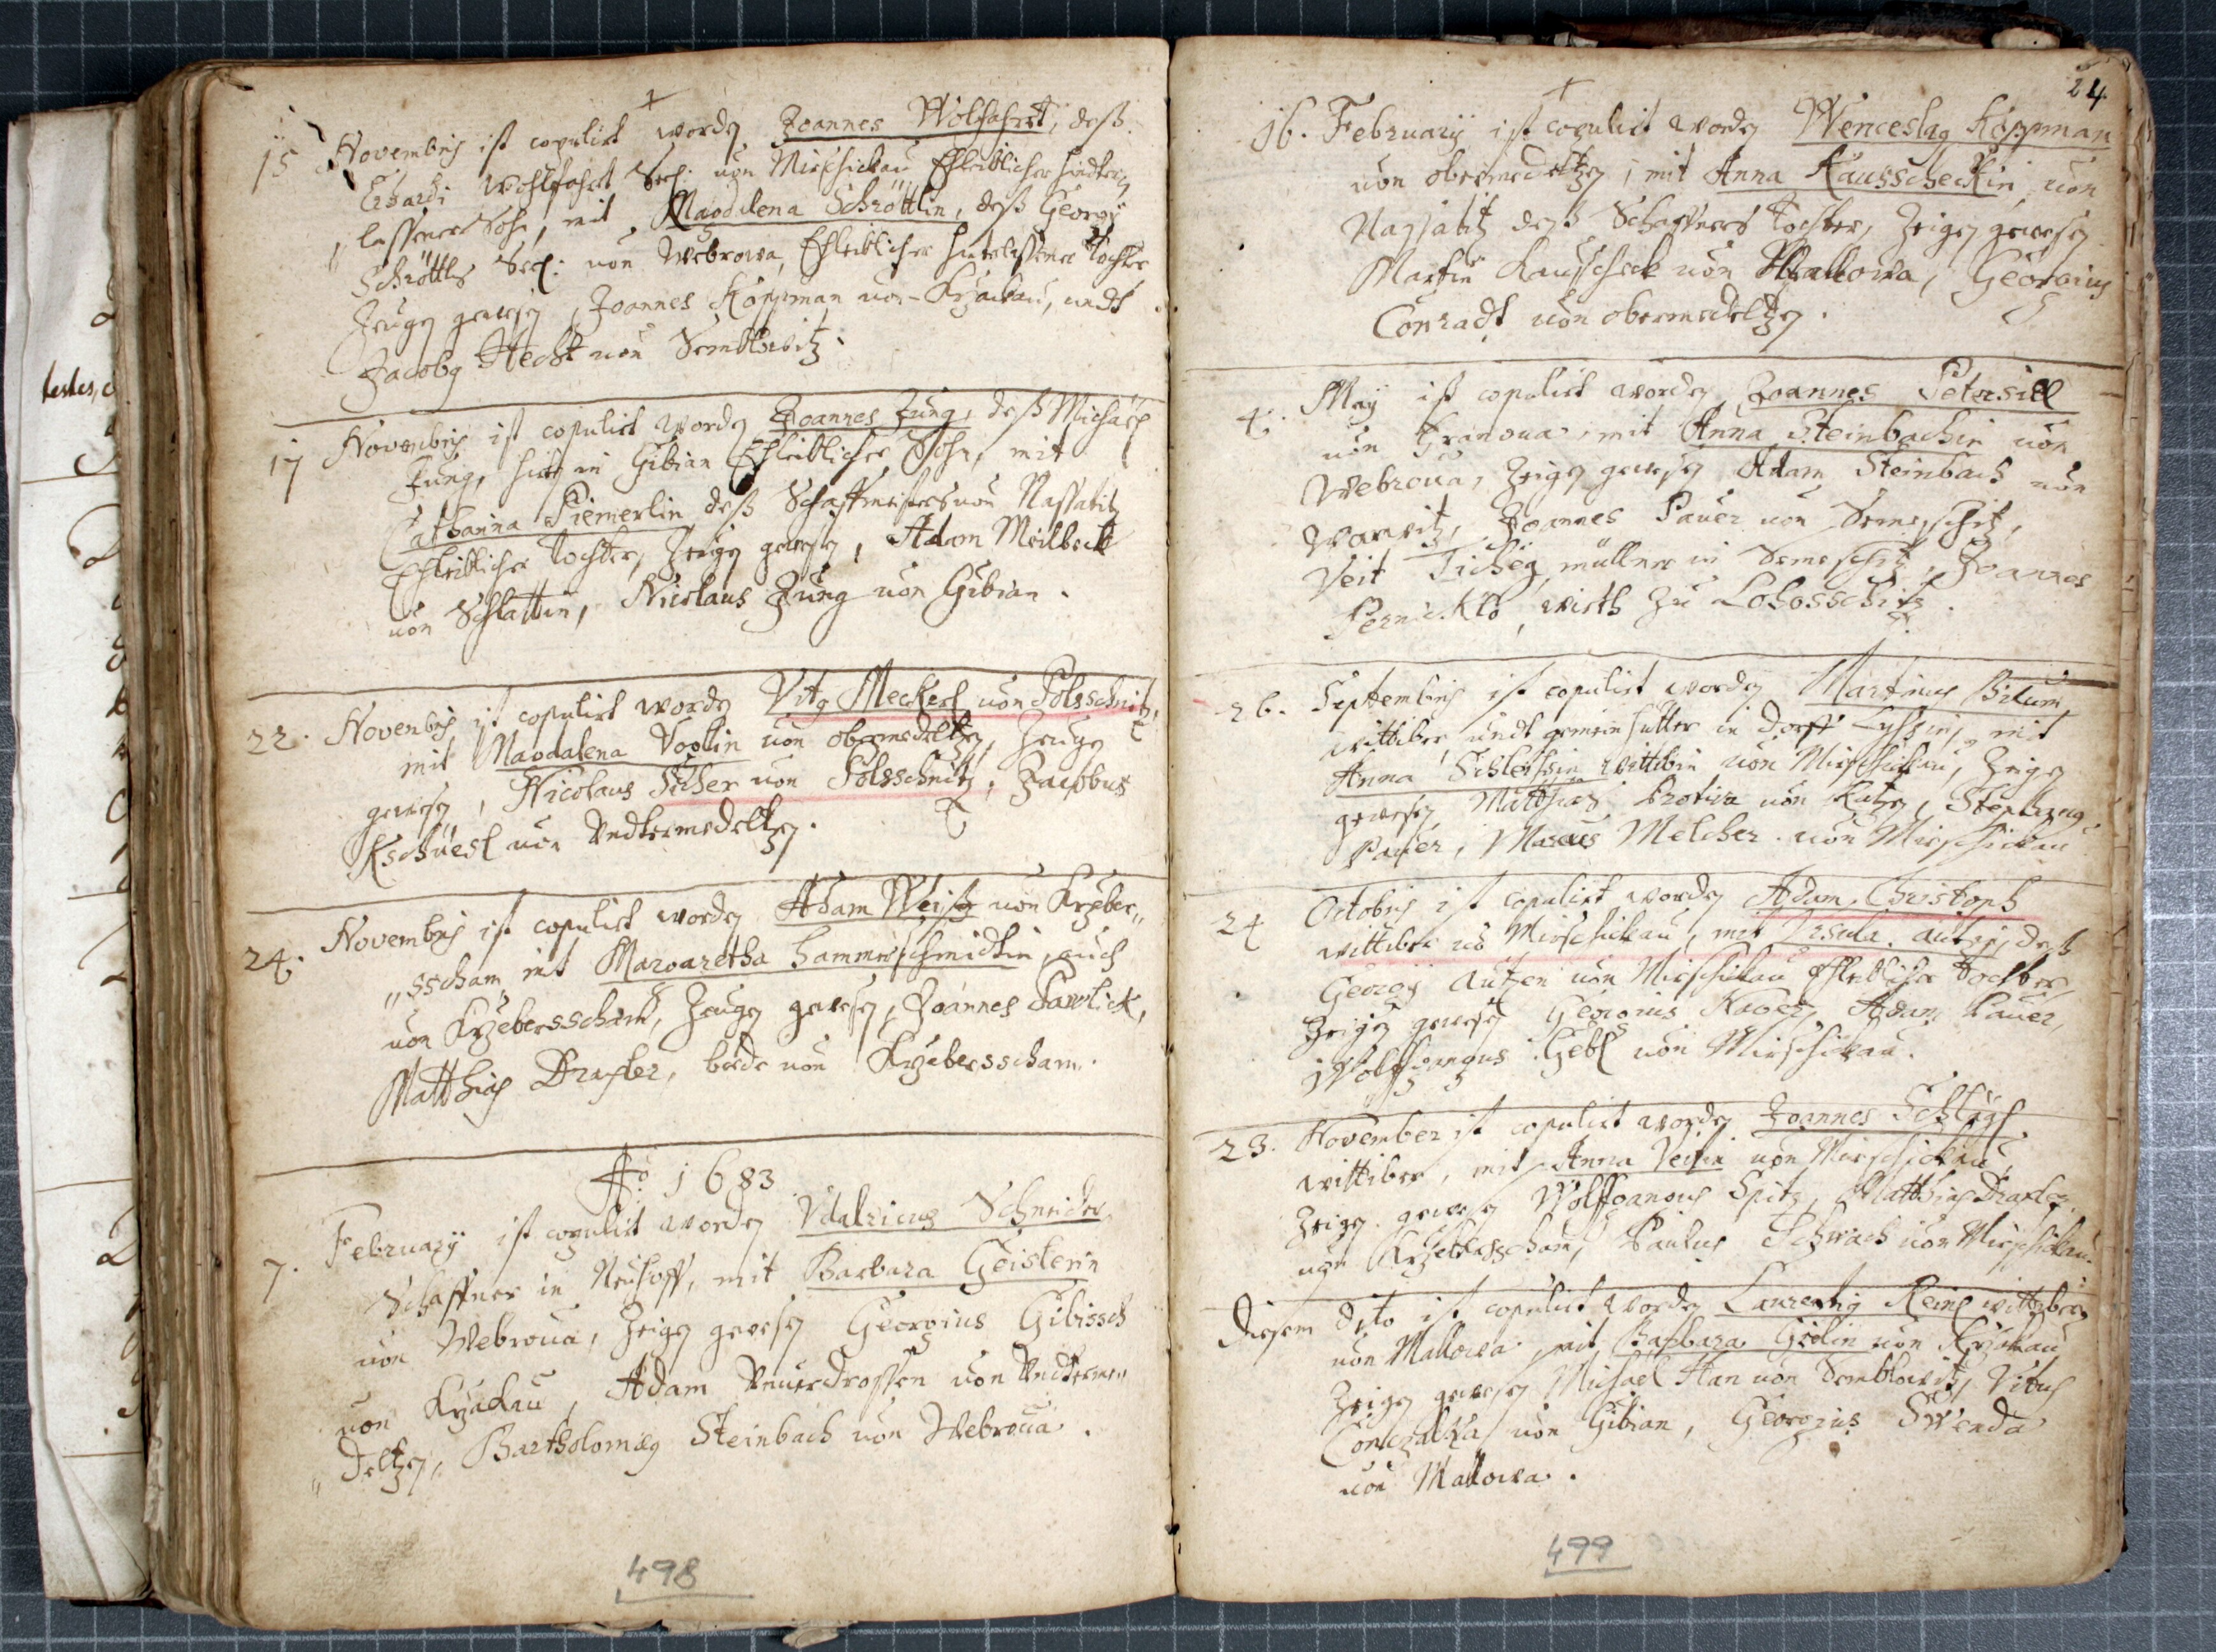 testes,
15 Novembris ist copulirt worden Joannes Wolfahrt, deß
Erhardi Wohlfahrt Seel: von Mirschickau Ehleiblicher hindter
lassener Sohn, mit Magdalena Schröttlin, deß Georgÿ
Schröttls Seel: von Webrowa, Ehleibliche hinterlassene Tochter
Zeugen gewesen, Joannes Köppman von Krackau, undt
Jacobus Hecht von Semblowitz.
17 Novembris ist copulirt worden Joannes Jung, deß Michael
Jung, hier in Gibian Ehleiblicher Sohn, mit
Catharina Piemerlin deß Schaffmeisters von Nassatitz
Ehleibliche Tochter, Zeigen gewesen, Adam Meilbeck
von Schlattin, Nicolaus Jung von Gibian.
22. Novembris ist copulirt worden Vitus Meckerl von Polsschnitz,
mit Magdalena Voglin von obermedeltzen, Zeuge
gewesen, Nicolaus Ticher von Polsschnitz, Jacobus
Kschüesl von Undtermedeltzen.
24. Novembris ist copulirt worden Adam Weiß von Krzeber„
„sscham mit Margaretha hammerschmidtin, auch
von Krzebersscham, Zeugen gewesen, Joannes Pawlick,
Matthias Draxler, beede von Krzebersscham.
Aō 1683
7. Februarÿ ist copulirt worden Udalricus Schneider
Schaffner in Neuhoff, mit Barbara Geislerin
von Webroua, Zeigen gewesen Georgius Gibisch
von Krzackau, Adam Neuerdrossen von Undterme„
„deltzen, Bartholomæus Steinbach von Webroua.
498
24
16. Februarÿ ist copulirt worden Wenceslaus Köppman
von obermedeltzen, mit Anna Kausscheckin von
Nassatitz deß Schaffners Tochter, Zeigen gewesen
Martin Kauscheck von Mallowa, Georgius
Conradt von obermedeltzen.
4. Maÿ ist copulirt worden Joannes Petersill
von Granoua, mit Anna Steinbachin von
Webroua, Zeigen gewesen Adam Steinbach von
Wawitz, Joannes Pauer von Semeschitz,
Veit Ticheÿ müller in Semeschitz, Joannes
Pernicklo, wirth zu Lohosschitz.
26. Septembris ist copulirt worden Martinus Bilum
wittiber undt gemein hutter in dorff mit
Anna wittibin von Mirschickau, Zeigen
gewesen Mathias Protiva von Katzen, Stephanus
Pauer, Marcus Melcher von Mirschickau
24 Octobris ist copulirt worden Adam Christoph
wittiber von Mirschickau, mit Ursula deß
Georgÿ von Mirschickau Ehleibliche Tochter,
Zeigen gewesen Georgius Adam Pauer,
Wolffgangus Gebl von Mirschickau.
23. November ist copulirt worden Joannes
wittiber, mit Anna von Mirschickau
Zeigen gewesen Wolffgangus Spitz, Matthias Draxler
von Krzebersscham, Paulus Schwach von Mirschickau.
Diesem dito ist copulirt worden Laurentius wittiber
von Mallowa mit Barbara von Krzakau
Zeigen gewesen Michael Han von Semblowitz, Vitus
von Gibian, Georgius Swenda
von Mallowa.
499